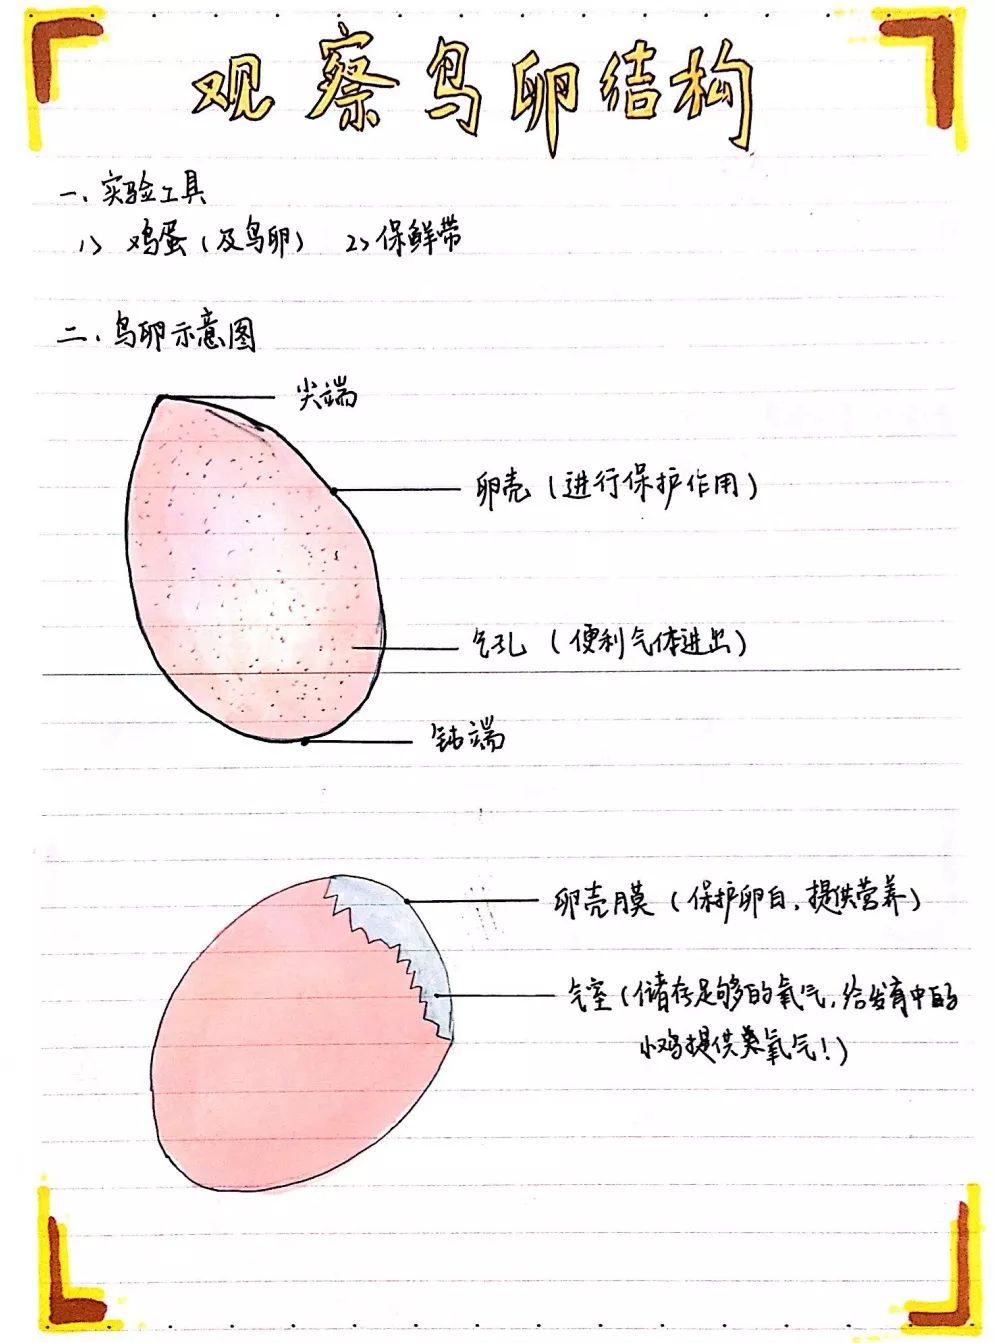 观察鸟卵结构
一、实验工具
1> 鸡蛋(及鸟卵) 2>保鲜带
二、鸟卵示意图
尖端
卵壳(进行保护作用)
气孔(便利气体进出)
钝端
卵壳膜(保护卵白,提供营养)
气室(储存足够的氧气,给发育中的
小鸡提供氧气!)